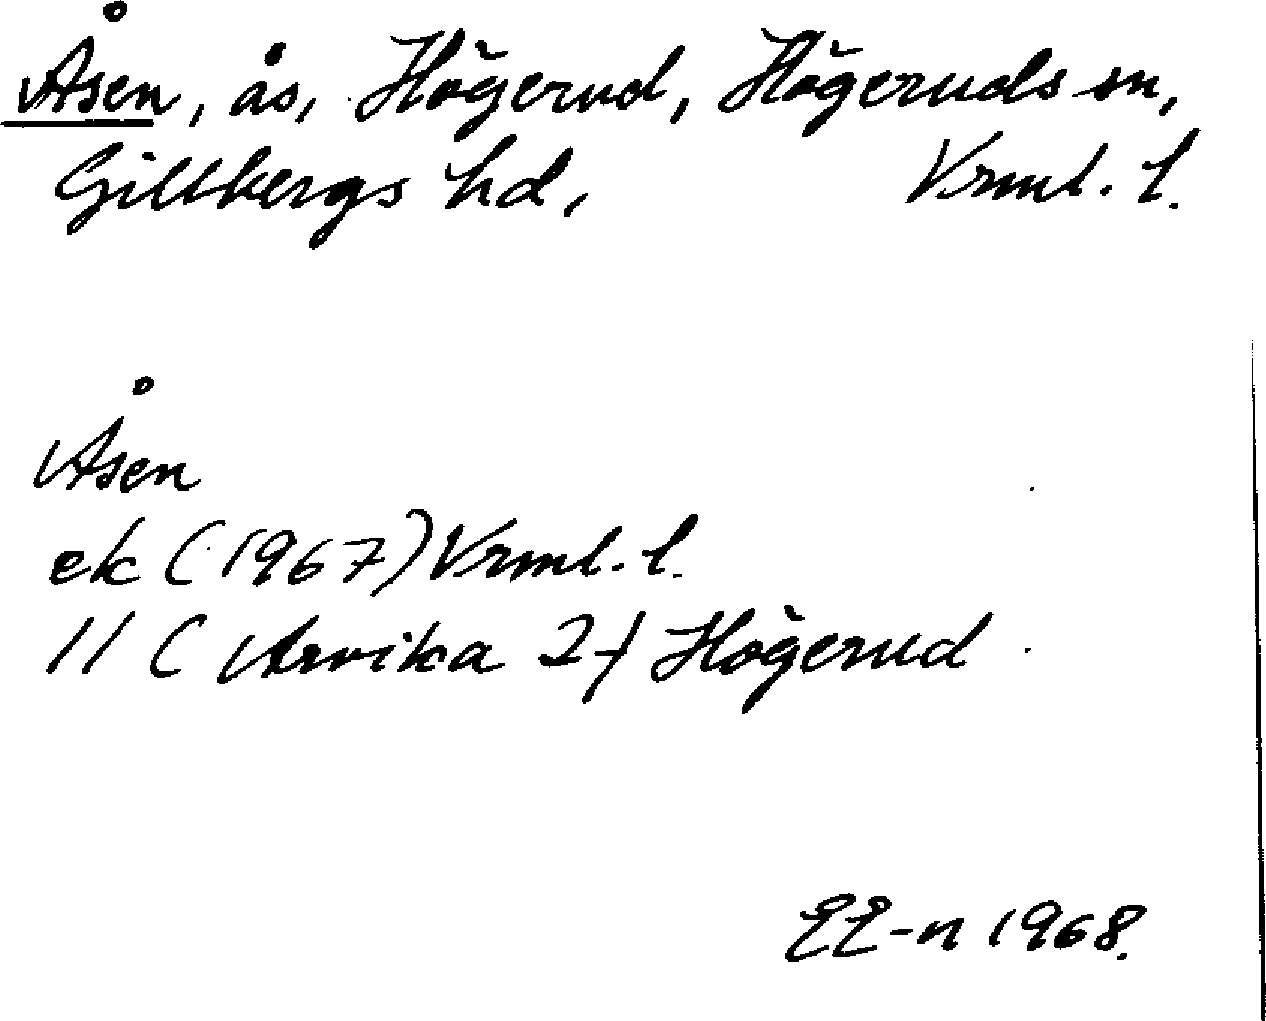 Åsen, ås, Högerud, Högeruds sn,
Gillbergs hd, Vrml. l.
Åsen
ek (1967) Vrml. l.
11 (Arvika 2) Högerud
EE-n 1968.